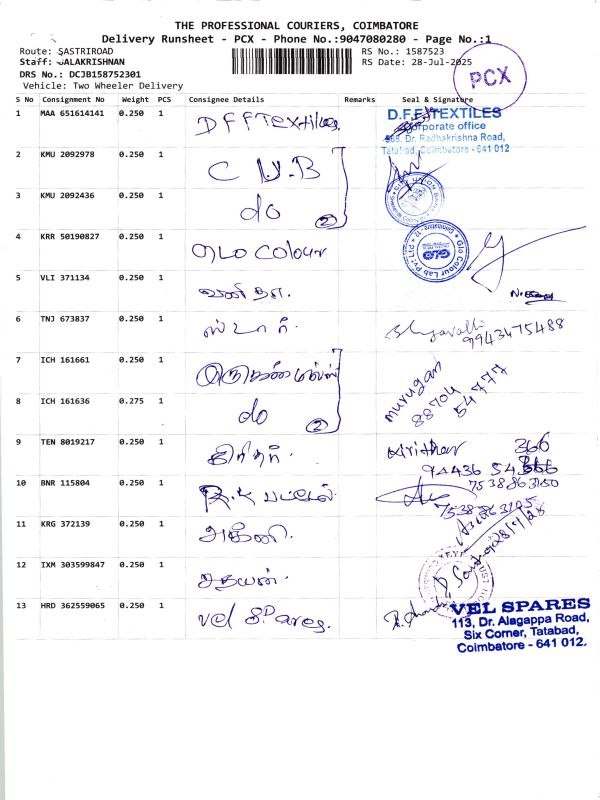 THE PROFESSIONAL COURIERS, COIMBATORE
Delivery Runsheet - PCX - Phone No.:9047080280 - Page No.:1
Route: SASTRIROAD
RS No.: 1587523
Staff: BALAKRISHNAN
RS Date: 28-Jul-2025
DRS No.: DCJB158752301
PCX
Vehicle: Two Wheeler Delivery
S No Consignment No Weight PCS Consignee Details Remarks Seal & Signature
1 MAA 651614141 0.250 1 DFF Textiles.
D.F.F.TEXTILES
Corporate office
568, Dr. Radhakrishna Road,
Tatabad, Coimbatore - 641 012
2 KMU 2092978 0.250 1 C U.B
3 KMU 2092436 0.250 1 do 2
4 KRR 50190827 0.250 1 GLO Colour
Glo Colour Lab Pvt Ltd
GLO
5 VLI 371134 0.250 1
6 TNJ 673837 0.250 1 ஸ்டார்.
9943475488
7 ICH 161661 0.250 1
murugan
88704
54777
8 ICH 161636 0.275 1 do 2
9 TEN 8019217 0.250 1 கிரிதர்.
Kirithar 366
94436 54366
10 BNR 115804 0.250 1 R.K பட்டேல்.
7538863150
7538863105
11 KRG 372139 0.250 1 அக்னி.
12 IXM 303599847 0.250 1 உதயன்.
13 HRD 362559065 0.250 1 Vel SPares.
VEL SPARES
113, Dr. Alagappa Road,
Six Corner, Tatabad,
Coimbatore - 641 012.